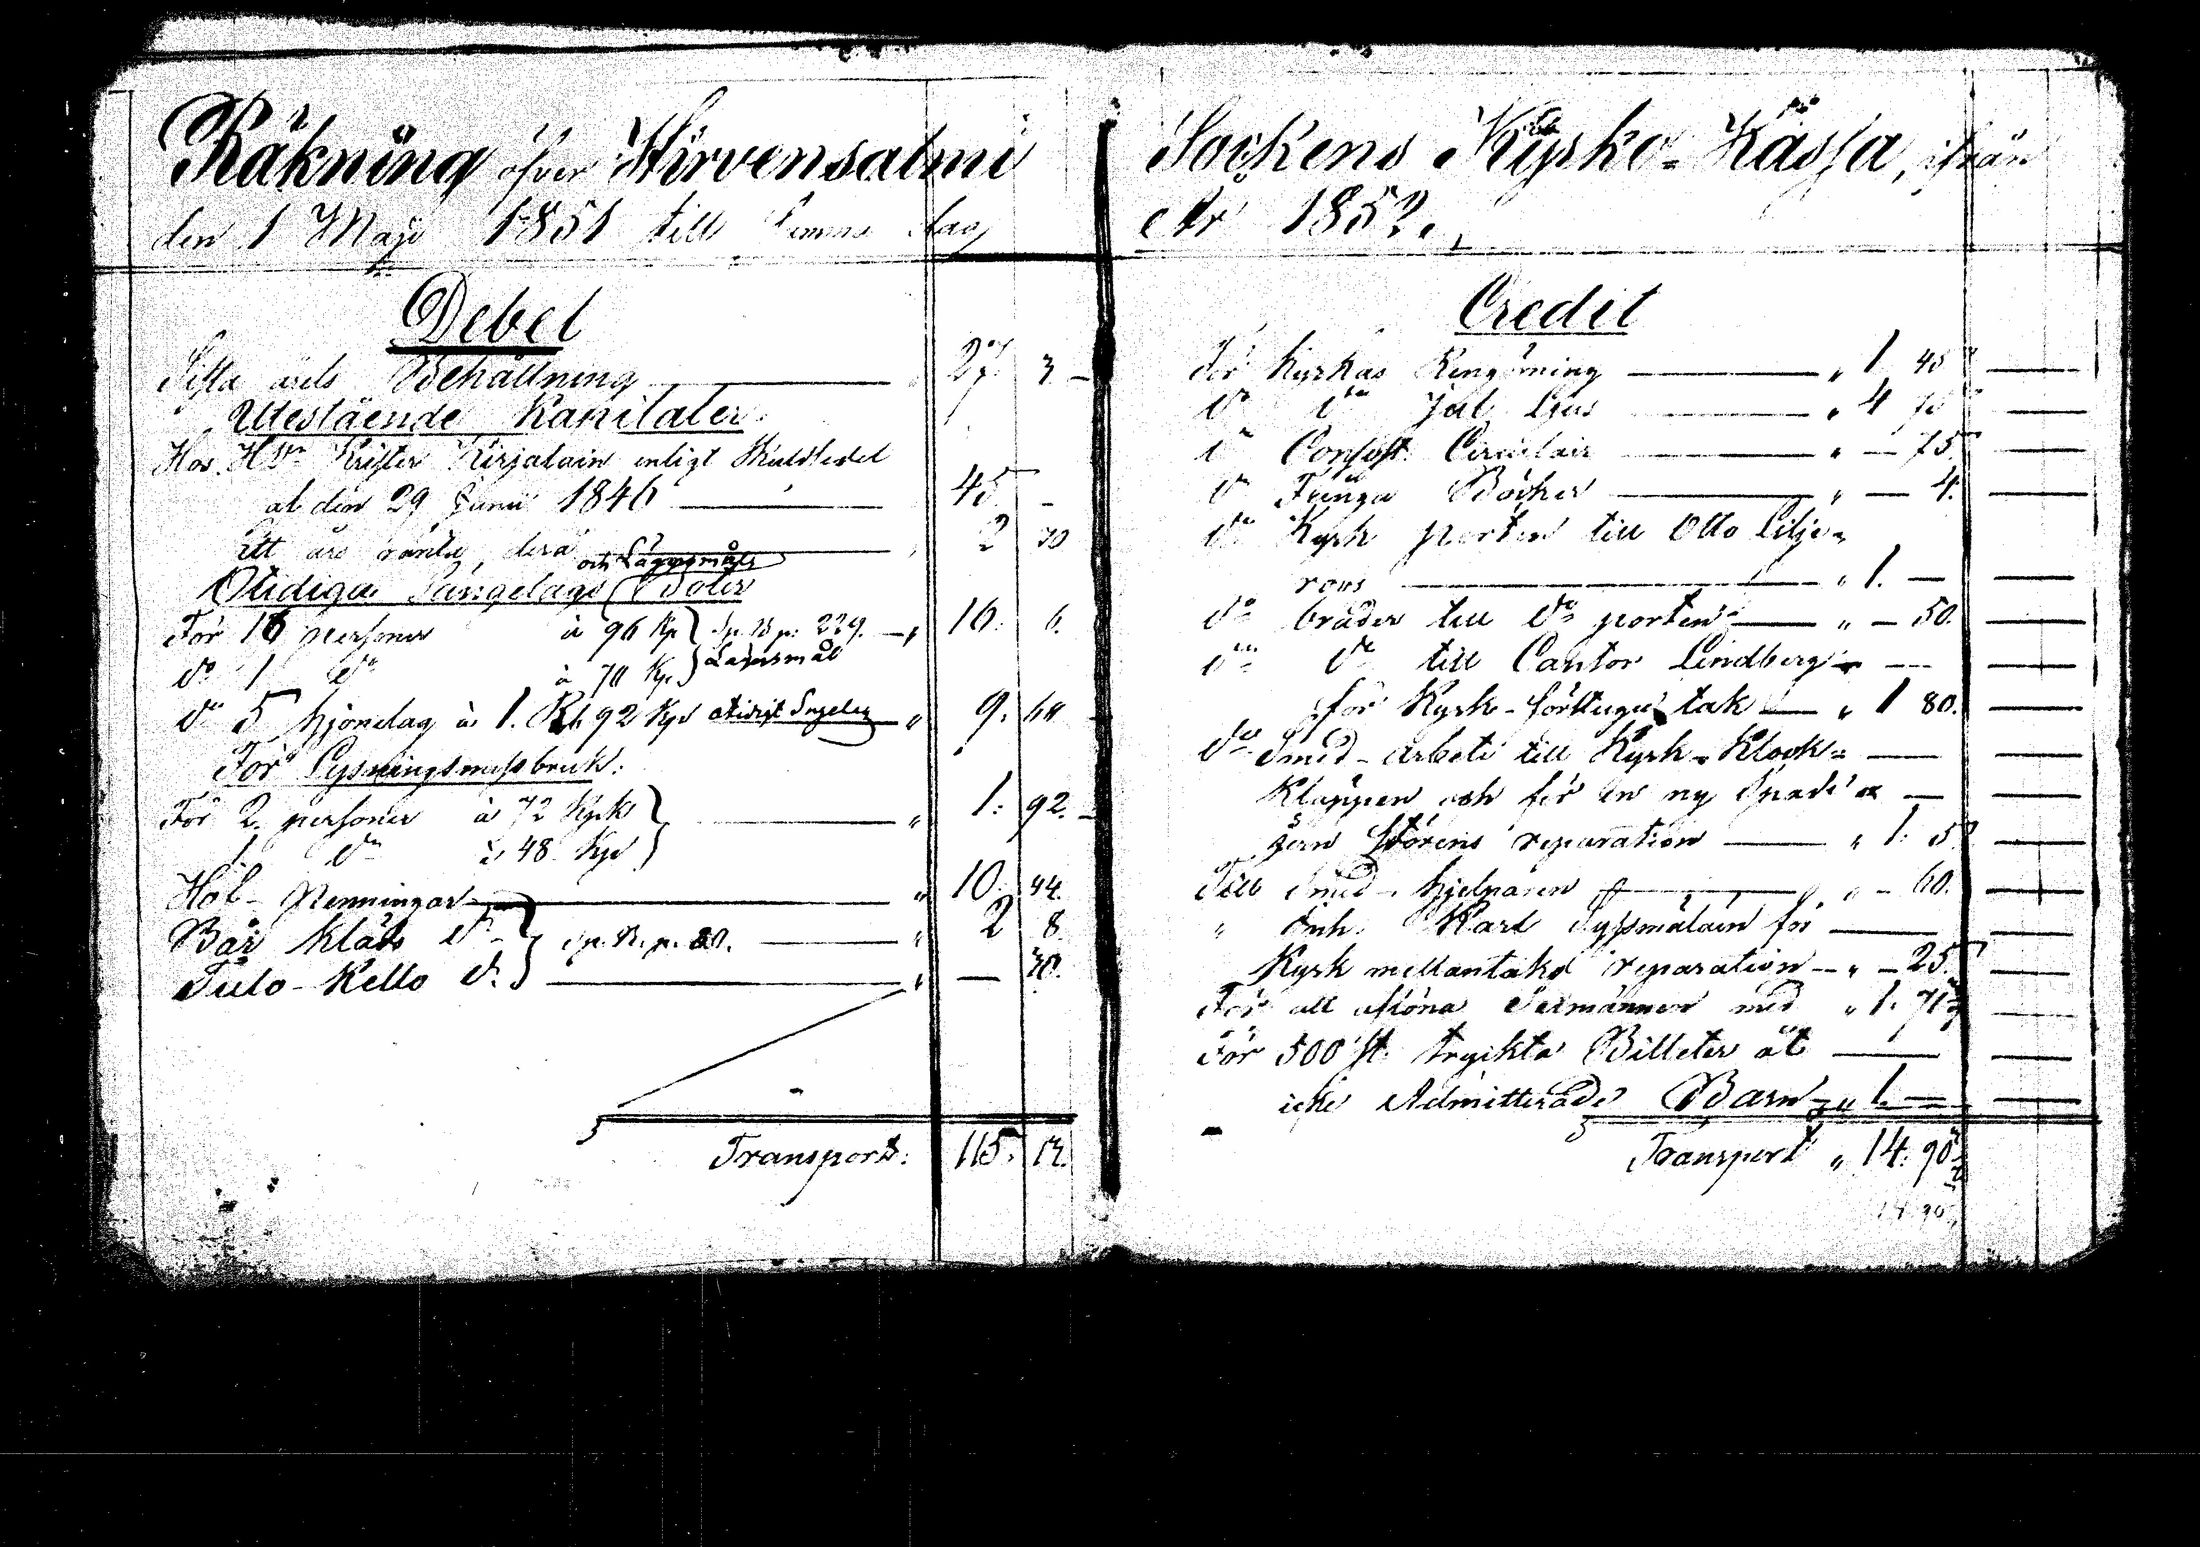 Räkning öfver Hirvensalmi
den 1 Maji 1851 till samma dag
Debet
Sista årets Behållning 27 3
Utestående Kapitaler.
Hos Krister Kirjalain enligt Skuldsedel
af den 29 Junii 1846 45 -
Ett års ränta derå 2 70
och Lägersmåls
Otidiga Sängelags Böter
För 16 personer à 96 Kp Sp. B. p: 229. 16. 6.
do 1 do à 70 Kp. Lägersmål
do 5 hjonelag à 1. Rb 92 Kps otidigt Sängelag 9. 60
För Lysningsmissbruk:
För 2 personer à 72 Kpk 1: 92.
1 do à 48 Kps
Håf-Penningar 10. 44.
Bår kläds do 2 8.
Tulo-Kello do. Sp. B. p. 20. — 70.
Transport: 115. 17.
Sockens Kyrko-Kassa, ifrån
År 1852.
Credit
För Kyrkas Rengörning " 1 45
do do Jul Ljus " 4 75
do Consist. Circulair " — 75.
do Tunga Böcker " — 4.
do Kyrk porten till Otto Lilje-
rons " 1. —
do bräder till do porten " — 50.
do do till Cantor Lindberg
för Kyrk-förstugu tak " 1 80.
do Smid-arbete till Kyrk-Klock-
Kläppen och för en ny Spade
jern Störens reparation " 1: 5
Till Smed-hjelparen " — 60.
" Inh. Karl Syssmälain för
Kyrk mellantaks reparation " — 25.
För att aflöna Sexmännen med " 1. 71
För 500 st. tryckta Billeter åt
icke Admitterade Barn " 1. —
Transport " 14. 90
14 90